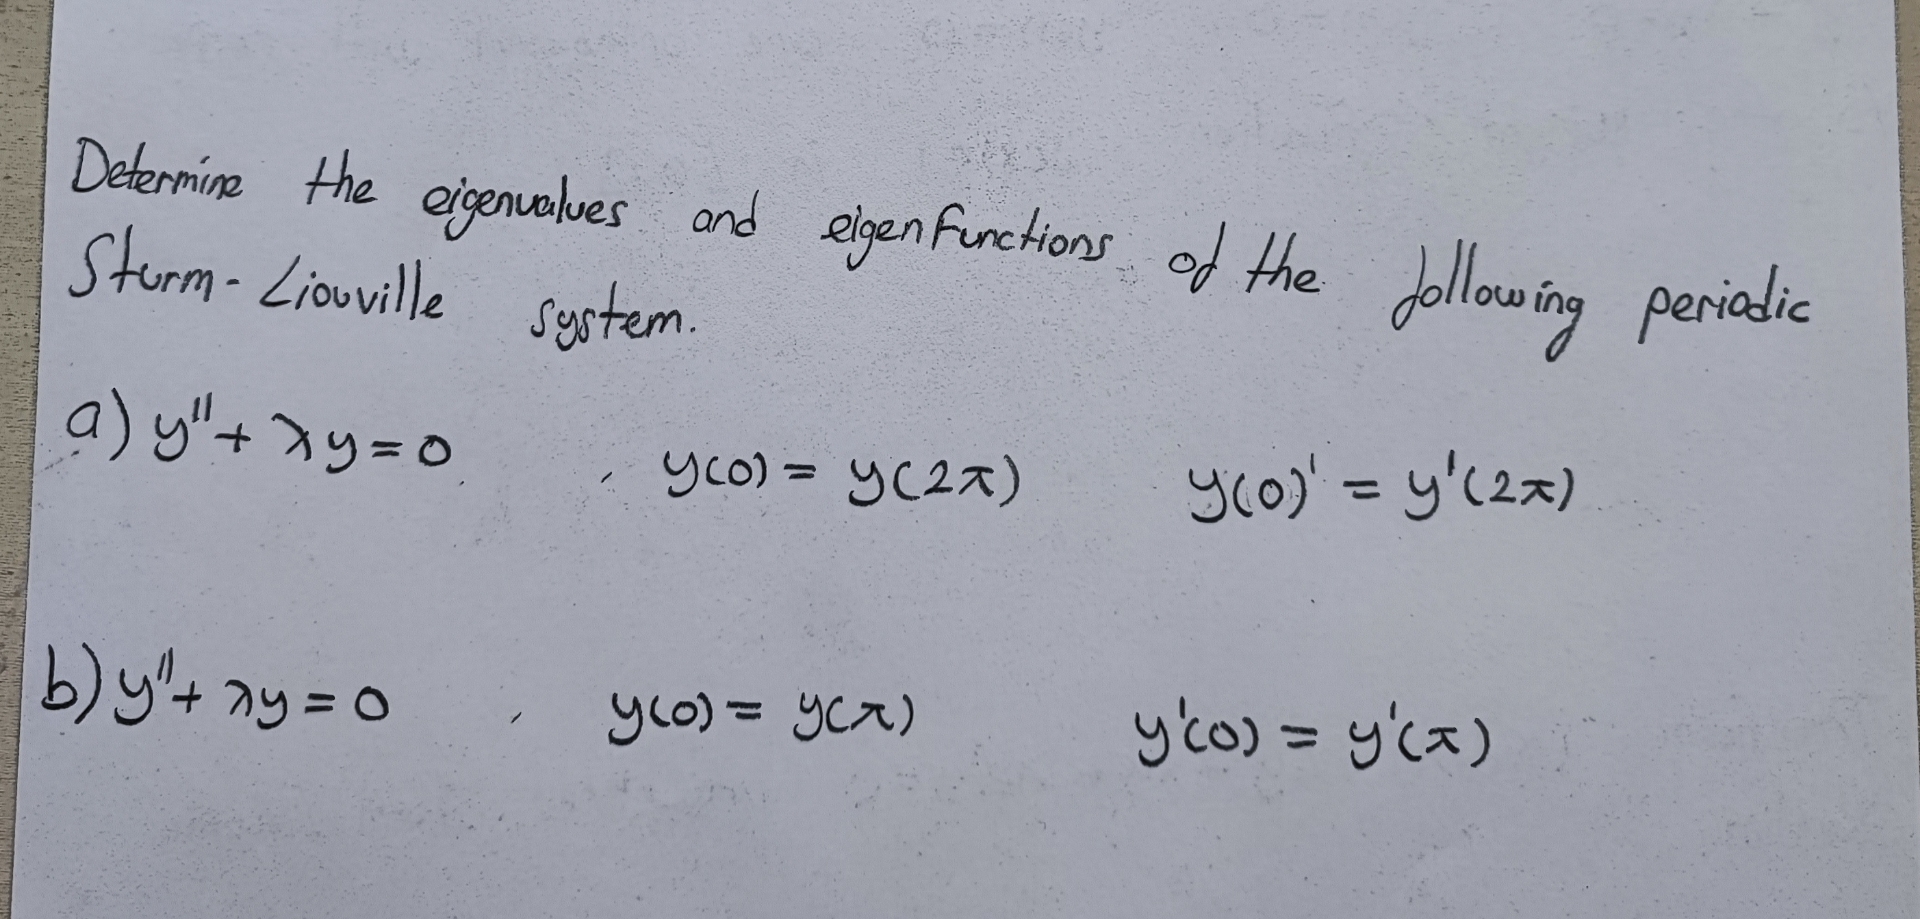 Determine the eigenvalues and eigenfunctions of the following periodic
Sturm-Liouville system.
a) y'' + λy = 0, y(0) = y(2π) y(0)' = y'(2π)
b) y'' + λy = 0, y(0) = y(π) y'(0) = y'(π)